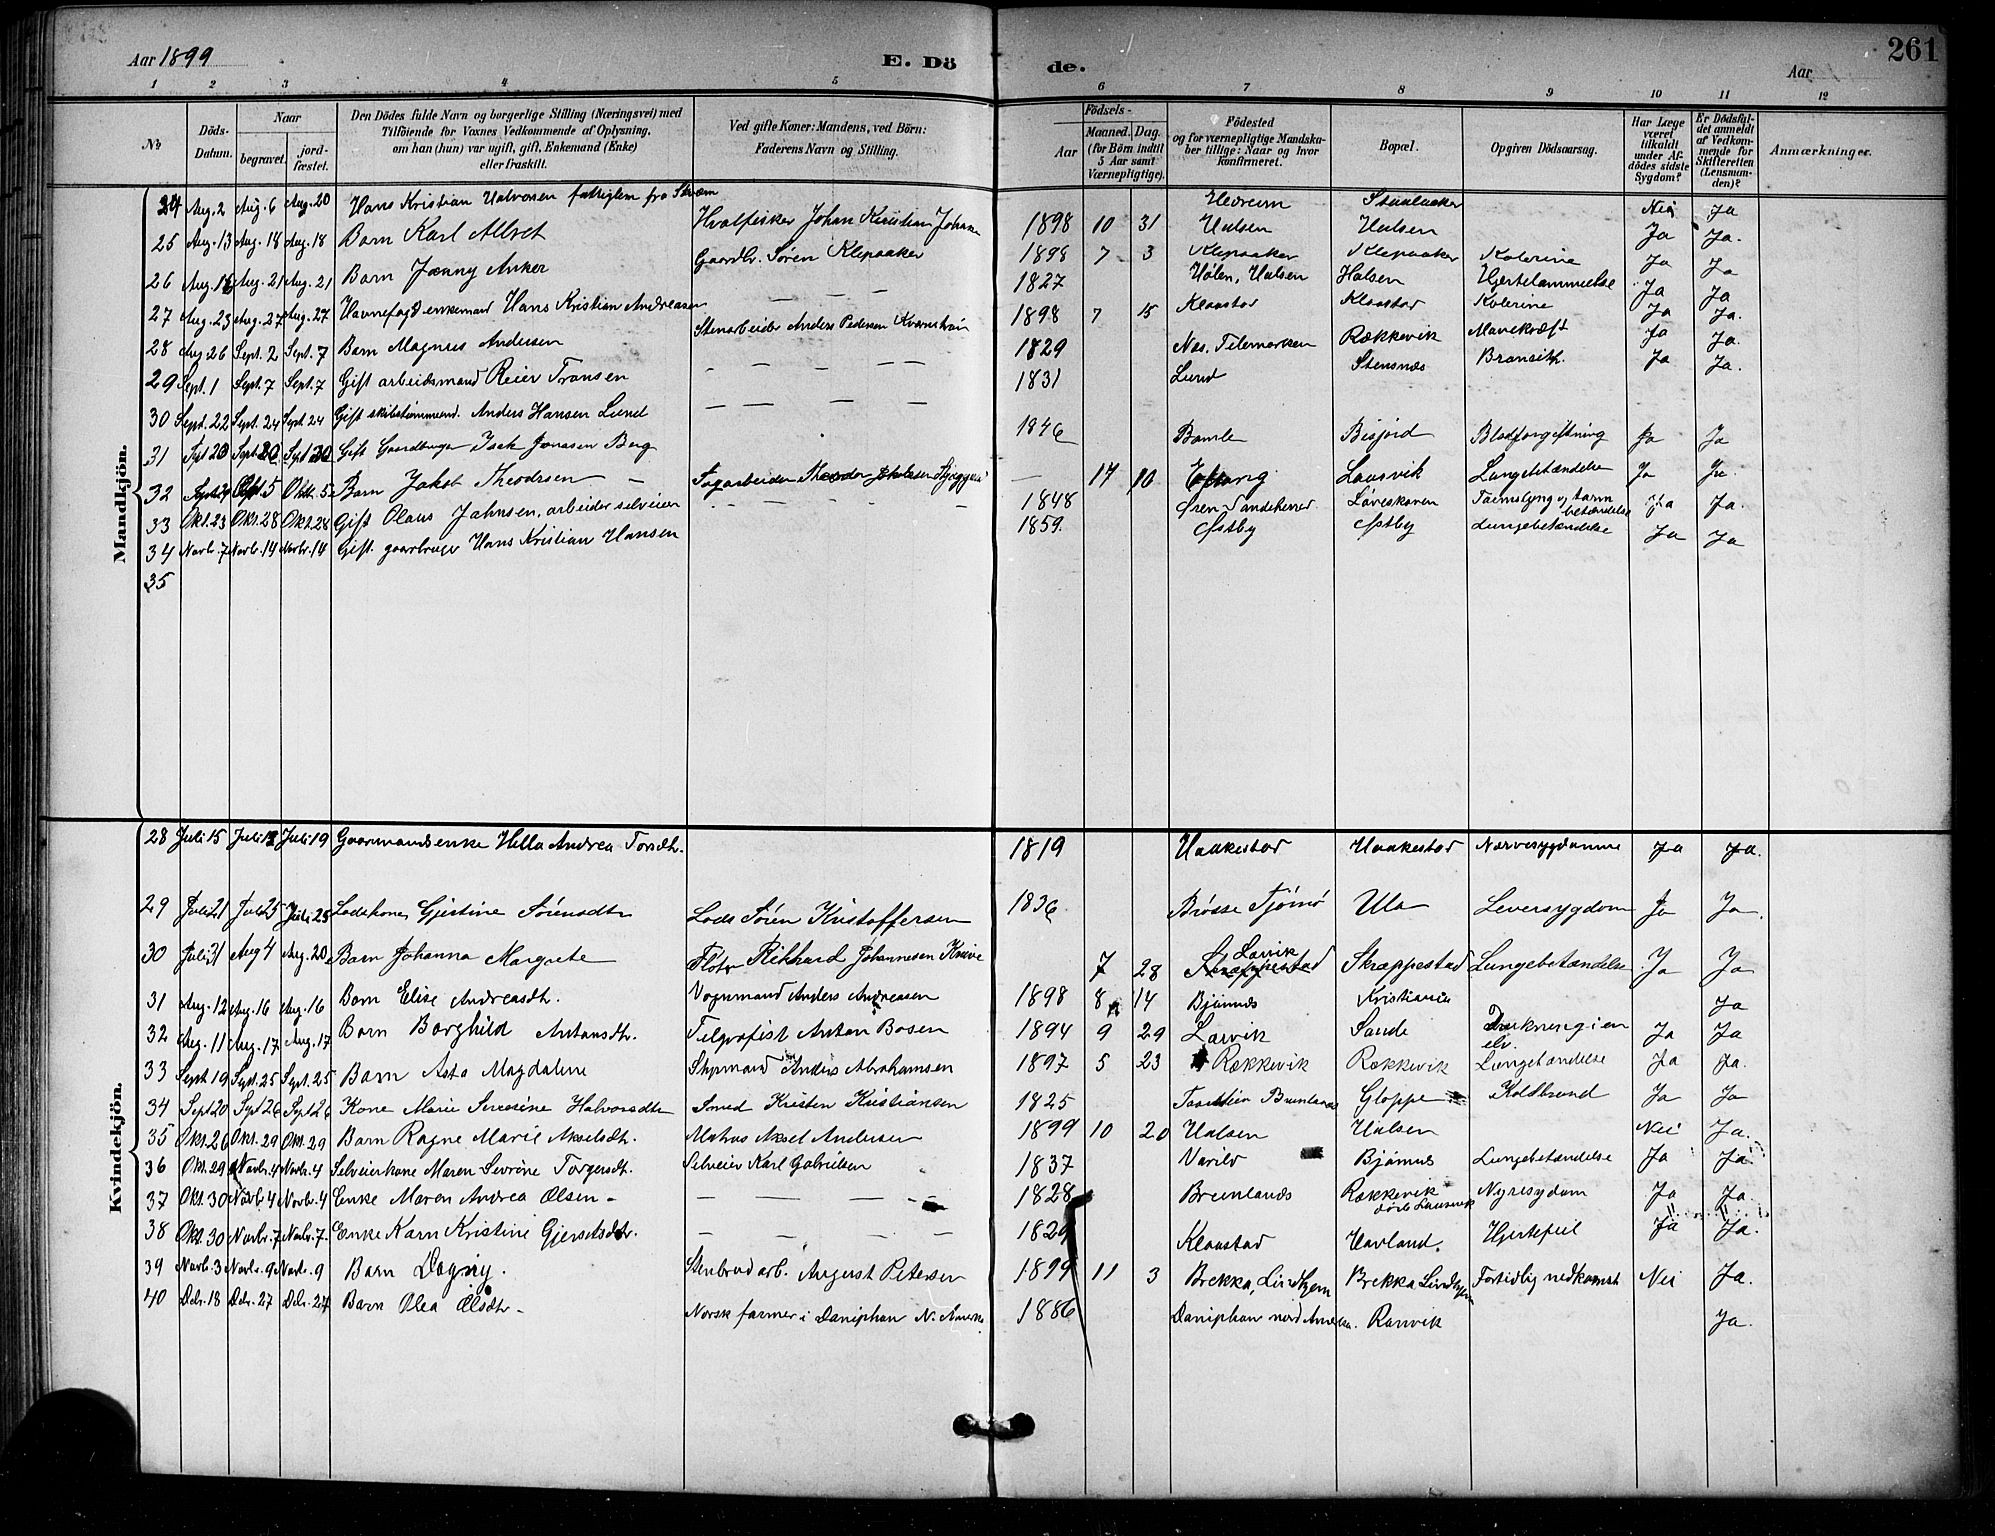 Aar 1899
E. Dö
de.
Aar
261
1 2 3 4 5 6 7 8 9 10 11 12
No
Döds-Datum.
Naar
begravet.
jord-fæstet.
Den Dödes fulde Navn og borgerlige Stilling (Næringsvei) med
Tilföiende for Voxnes Vedkommende af Oplysning,
om han (hun) var ugift, gift, Enkemand (Enke)
eller fraskilt.
Ved gifte Koner: Mandens, ved Börn:
Faderens Navn og Stilling.
Födsels-
Aar
Maaned. Dag.
(for Börn indtil
5 Aar samt
Værnepligtige).
Födested
og for værnepligtige Mandska-
ber tillige: Naar og hvor
konfirmeret.
Bopæl.
Opgiven Dödsaarsag.
Har Læge
været
tilkaldt
under Af-
dödes sidste
Sygdom?
Er Dödsfal-
det anmeldt
af Vedkom-
mende for
Skifteretten
(Lensman-
den)?
Anmærkninger.
Mandkjön.
24 Aug. 2 Aug. 6 Aug. 20 Hans Kristian Halvorsen fattiglem fra Hedrum Nei Ja
25 Aug. 13 Aug. 18 Aug. 18 Barn Karl Alfret Hvalfisker Johan Kristian 1898 10 31 Halsen Halsen Ja Ja.
26 Aug. 16 Aug. 21 Aug. 21 Barn Jenny Anker Gaardbr. Søren Klepaaker 1898 7 3 Klepaaker Klepaaker Kolerine Ja Ja
27 Aug. 23 Aug. 27 Aug. 27 Havnefogd enkemand Hans Kristian Andreasen — — — 1827 Hølen, Halsen Halsen Hjertelammelse Ja Ja
28 Aug 26 Sept. 2 Sept. 7 Barn Magnus Andersen Stenarbeider Anders Pedersen 1898 7 15 Klaastad Klaastad Kolerine Ja Ja.
29 Sept. 1 Sept. 7 Sept. 7 Gift arbeidsmand Reier Fransen — — — — 1829 Nes. Telemarken Rækkevik Mavekræft Ja Ja.
30 Sept. 22 Sept. 24 Sept. 24 Gift skibstømmermd. Anders Hansen Lund — — — — 1831 Lund Stensnæs Bronsith. Ja Ja.
31 Sept 20 Gift Gaardbruger Isak Jonassen Berg 1846 Bamle Bisjord Blodforgiftning Ja Ja
32 Okt. 5 Okt. 5 Barn Jakob Theodrsen — Sagarbeider Theodor — 14 10 Lausvik Lungebetændelse Ja Ja
33 Okt. 23 Okt. 28 Okt. 28 Gift Olaus Jahnsen, arbeider selveier 1848 Øren Sandeherred Løveskoven betændelse Ja Ja.
34 Novb. 7 Novbr. 14 Novbr. 14 Gift gaarbruger Hans Kristian Hansen 1859. Østby Østby Lungebetændelse Ja Ja
35
Kvindekjön.
28 Juli 15 Juli Juli 19 Gaarmandsenke Hella Andrea Torsdtr. 1819 Haakestad Haakestad Nervesygdomme Ja Ja.
29 Juli 21 Juli 25 Juli 25 Lodskone Gjertine Sørensdtr Lods Søren Kristoffersen 1836 Brøsse Tjømø Ula Leversygdom Ja Ja.
30 Juli 31 Aug 4 Aug. 20 Barn Johanna Margrete Rikhard Johannesen 7 28 Larvik Skræppestad Skræppestad Lungebetændelse Ja Ja
31 Aug. 12 Aug. 16 Aug. 16 Barn Elise Andreasdtr. Vognmand Anders Andreasen 1898 8 14 Bjønnes Kristiania Ja
32 Aug. 11 Aug. 17 Aug. 17 Barn Borghild Antonsdtr. Telgrafist Anton Bosen 1894 9 29 Larvik Sande Drukning i en elv Ja Ja
33 Sept. 19 Sept. 25 Sept. 25 Barn Asta Magdalene Styrmand Anders Abrahamsen 1897 5 23 Rækkevik Rækkevik Lungebetændelse Ja Ja.
34 Sept 20 Sept 26 Sept 26 Kone Marie Severine Halvorsdtr Smed Kristen Kristiansen 1825 Brunlanes Gloppe Koldbrand Ja Ja
35 Okt. 26 Okt. 29 Okt. 29 Barn Ragne Marie Akselsdtr. Matros Aksel Andersen 1899 10 20 Halsen Halsen Nei Ja.
36 Okt. 29 Novbr. 4 Novbr. 4 Selveierkone Maren Sevrine Torgersdt. Selveier Karl Gabrielsen 1837 Varild Bjønnes Lungebetændelse Ja Ja
37 Okt. 30 Novbr. 4 Novbr. 4 Enke Maren Andrea Olsen — — — — — 1828 Brunlanes Rækkevik Nyresydom Ja Ja.
38 Okt. 30 Novbr. 7 Novbr. 7. Enke Karn Kristine — — — — 1829 Klaastad Havland. Hjertefeil Ja Ja.
39 Novb. 3 Novbr. 9 Novbr. 9 Barn Dagny. Stenbrudarb. August Petersen 1899 11 3 Brekka, Lindhjem Brekka Lindhjem Fortidlig nedkomst Nei Ja.
40 Debr. 18 Debr. 27 Debr. 27 Barn Olea Olsdtr - Norsk farmer i Daniphan N. Amerika 1886 Daniphan nord Amerika. Ranvik Ja.